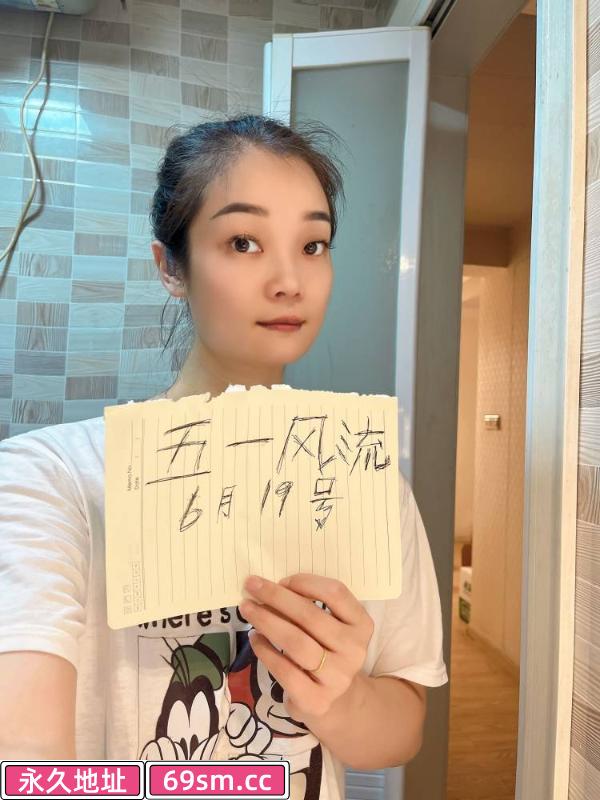 五一风流
6月19号
Memo No.
Date
where's
永久地址 69sm.cc